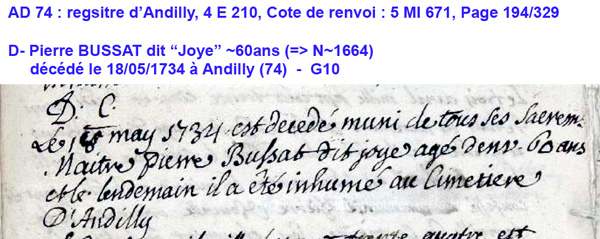 AD 74 : regsitre d’Andilly, 4 E 210, Cote de renvoi : 5 MI 671, Page 194/329
D- Pierre BUSSAT dit “Joye” ~60ans (=> N~1664)
décédé le 18/05/1734 à Andilly (74) - G10
D. C.
Le 18 may 1734 est decedé muni de tous ses sacrem.
Maitre pierre Bussat dit joye agé d'env. 60 ans
et le lendemain il a été inhumé au Cimetiere
D'Andilly
quatre est